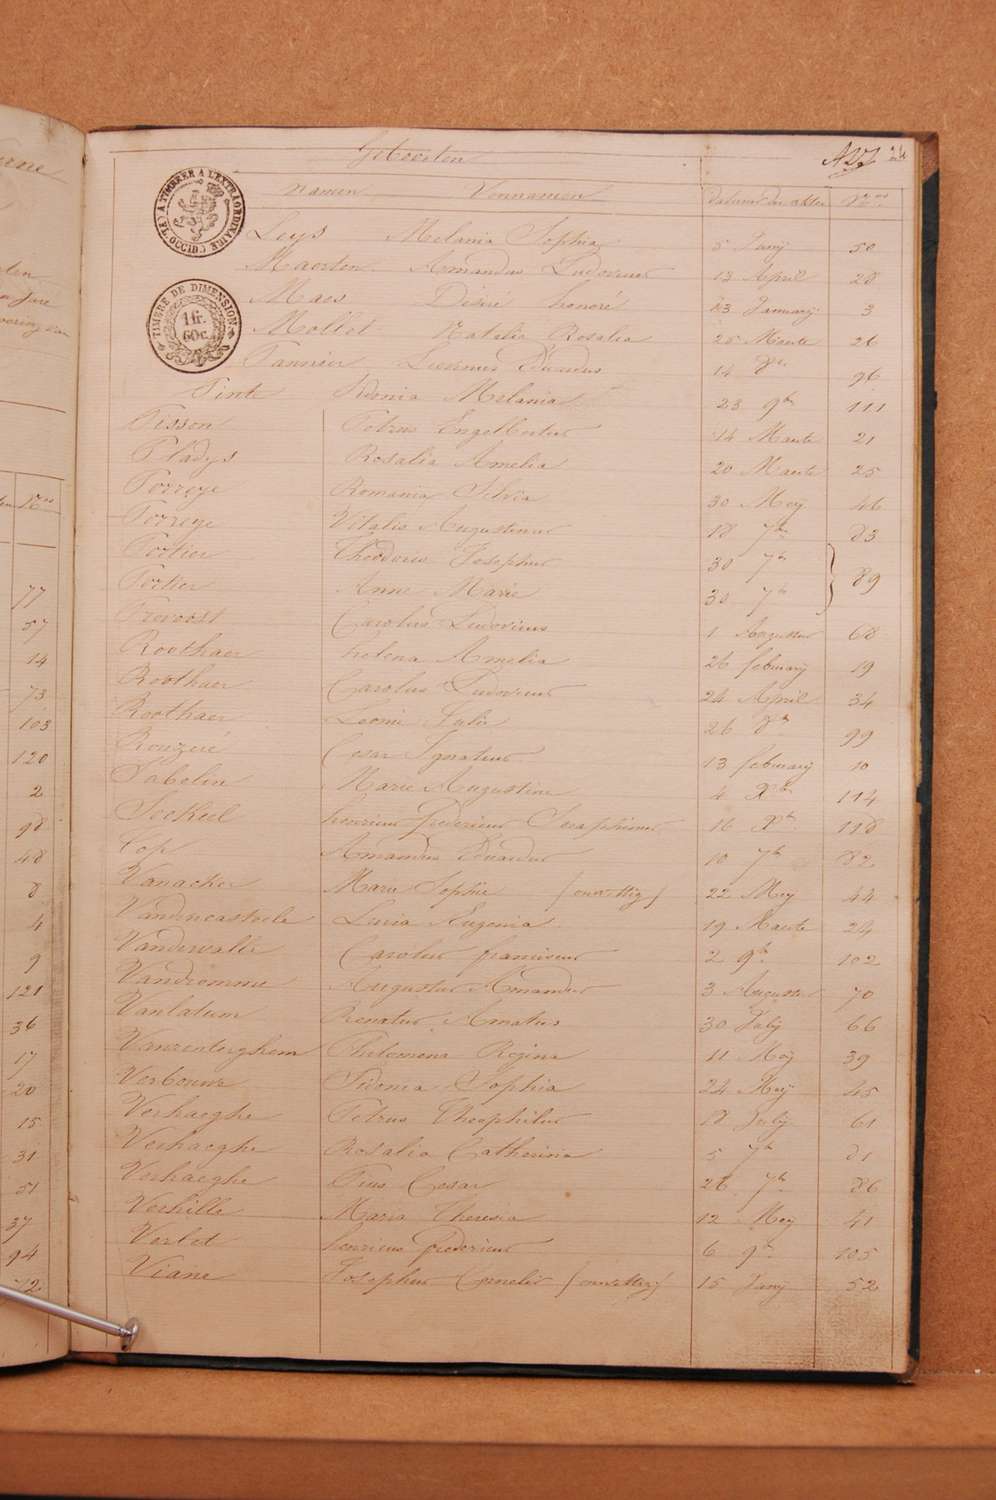 Geboorten
Namen Voornamen Datums der akten Nos
A TIMBRER A L'EXTRAORDINAIRE (FL. OCCID.)
TIMBRE DE DIMENSION
1 fr. 60 c.
Leys Melania Sophia 5 Junij 50
Maerten Amandus Ludovicus 13 April 28
Maes Désiré honoré 23 Januarij 3
Mollet Natalia Rosalia 25 Maarte 26
Pannier Leonius Eduardus 14 8er 96
Pinte Sidonia Melania 23 9br 111
Pisson Petrus Engelbertus 14 Maarte 21
Pladys Rosalia Amelia 20 Maarte 25
Porreye Romania Silvia 30 Meij 46
Porreye Vitalis Augustinus 18 7br 83
Portier Theodorus Josephus 30 7br
Portier Anne Marie 30 7br 89
Prevoost Carolus Ludovicus 1 Augustus 68
Roothaer helena Amelia 26 februarij 19
Roothaer Carolus Ludovicus 24 April 34
Roothaer Leonie Julie 26 8br 99
Rouzeré Cesar Ignatius 13 februarij 10
Sabelin Marie Augustine 4 Xbr 114
Soekeel henricus fredericus Seraphinus 16 Xbr 118
Top Amandus Eduardus 10 7br 82
Vanacker Marie Sophie (onwettig) 22 Mey 44
Vandecasteele Lucia Eugenia 19 Maarte 24
Vandewalle Carolus franciscus 2 9br 102
Vandromme Augustus Amandus 3 Augustus 70
Vanlatum Renatus Amatus 30 Julij 66
Vanrenterghem Philomena Regina 11 Meij 39
Verbouwe Sidonia Sophia 24 Meij 45
Verhaeghe Petrus Theophilus 18 Julij 61
Verhaeghe Rosalia Catherina 5 7br 81
Verhaeghe Pius Cesar 26 7br 86
Verhille Maria Theresia 12 Mey 41
Verlet henricus fredericus 6 9br 105
Viane Josephus Cornelis (onwettig) 15 Junij 52
77
57
14
73
103
120
2
98
48
8
4
9
121
36
17
20
15
31
51
37
94
72